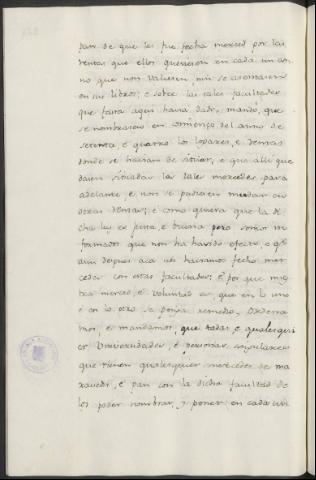 dam de que les fue fecha merced por las
rentas que ellos quisieron en cada un an
no que non valiesen, nin se asentaren
en sus libros; e sobre las tales facultades
que fasta aqui havia dado, mandó, que
se nombrasen en comienzo del anno de
setenta, e quatro los logares, e rentas
donde se havian de situar, e que alli que
dasen situadas las tales mercedes para
adelante, e non se pudiesen mudar en
otras rentas; e como quiera que la di
cha ley es justa, e buena pero somos in
formados que non ha havido efecto, e q.e
aun despues acá nos havemos fecho mer
cedes con estas facultades: E por que nues
tra merced, e voluntad es que en lo uno
é en lo otro se ponga remedio, Ordena
mos, e mandamos, que todas, e qualesqui
er Universidades, e personas singulares
que tienen qualesquier mercedes de ma
ravedis, e pan con la dicha facultad de
los poder nombrar, y poner en cada un